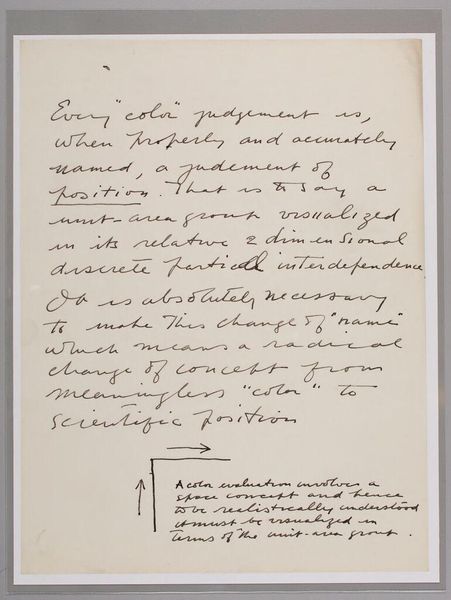 Every "color" judgement is,
when properly and accurately
named, a judement of
position. That is to say a
unit-area group visualized
in its relative 2 dimensional
discrete particll interdependence
It is absolutely necessary
to make this change of "name"
which means a radical
change of concept from
meaningless "color" to
scientific position
A color evaluation involves a
space concept and hence
to be realistically understood
it must be visualized in
terms of the unit-area group.